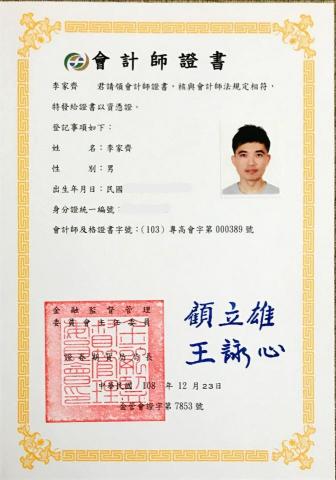 會計師證書
李家齊 君請領會計師證書，核與會計師法規定相符，
特發給證書以資憑證。
登記事項如下：
姓 名：李家齊
性 別：男
出生年月日：民國
身分證統一編號：
會計師及格證書字號：(103) 專高會字第 000389 號
金融監督管理
委員會主任委員
顧立雄
證券期貨局局長
王詠心
中華民國 108 年 12 月 23 日
金管會證字第 7853 號